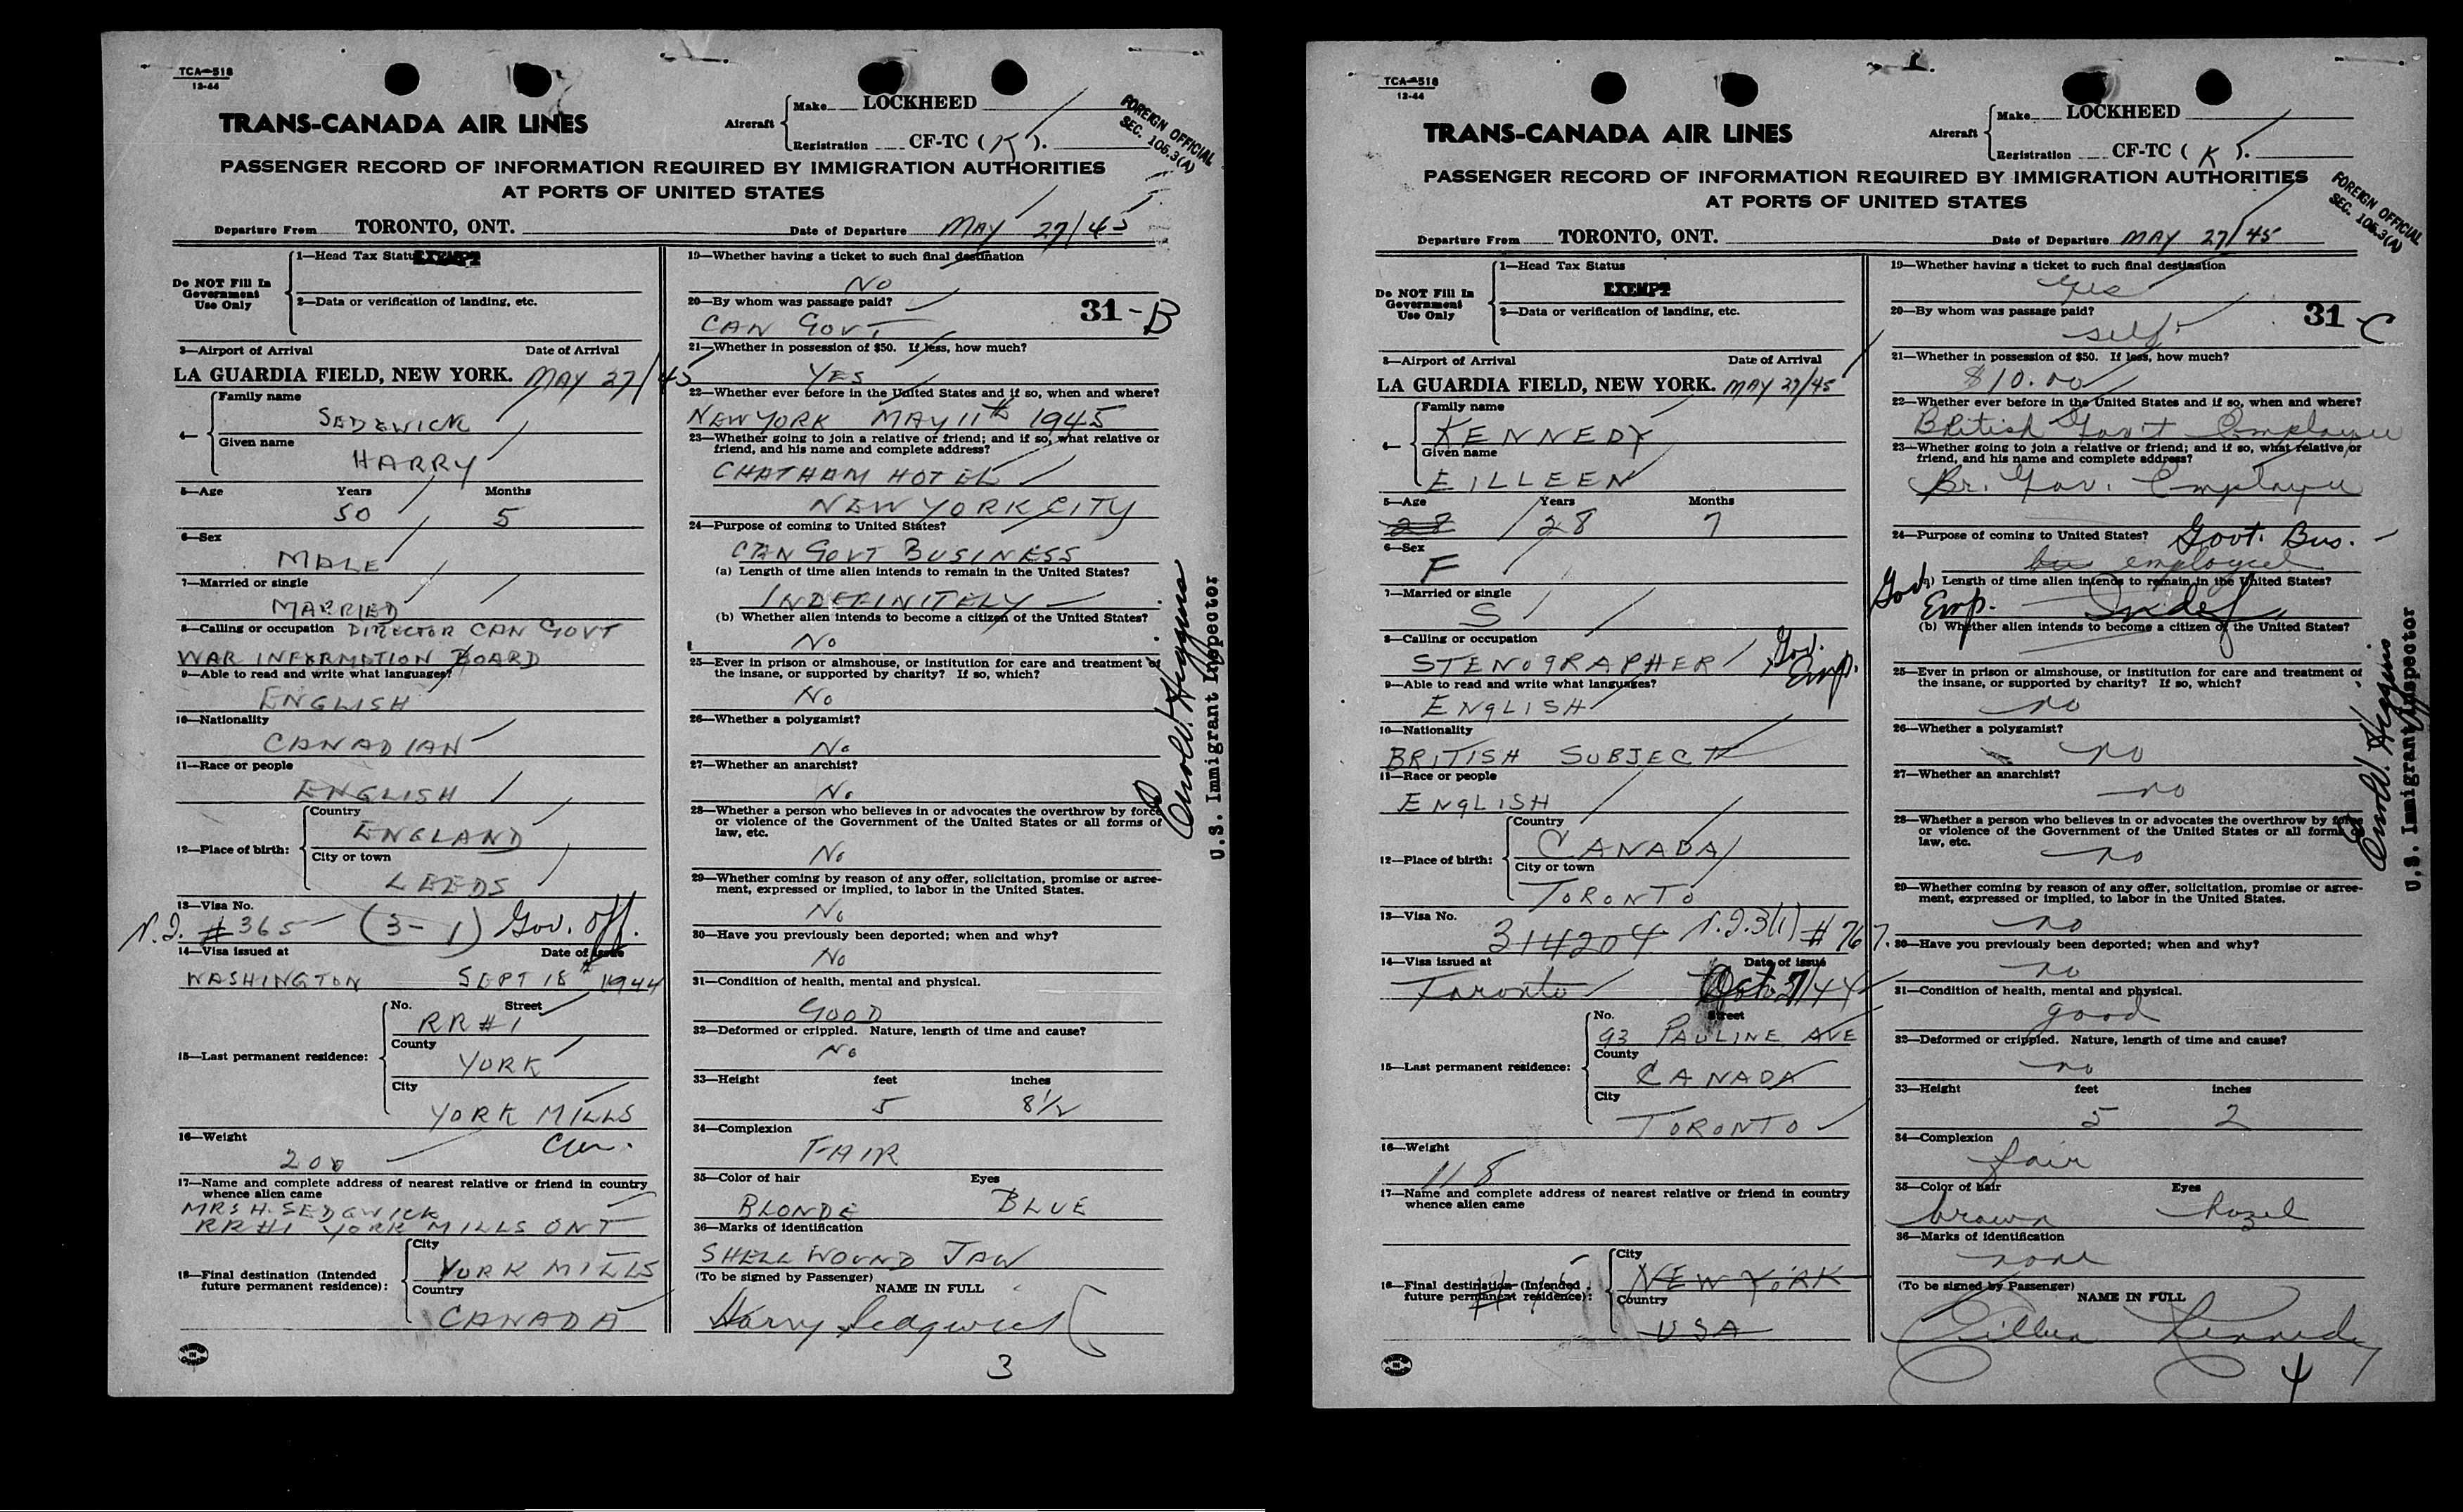 TCA-518
12-44
TRANS-CANADA AIR LINES
Aircraft
Make LOCKHEED
Registration CF-TC (K).
FOREIGN OFFICIAL
SEC. 106.3(A)
PASSENGER RECORD OF INFORMATION REQUIRED BY IMMIGRATION AUTHORITIES
AT PORTS OF UNITED STATES
Departure From TORONTO, ONT.
Date of Departure MAY 27/45
Do NOT Fill In
Government
Use Only
1—Head Tax Status EXEMPT
2—Data or verification of landing, etc.
3—Airport of Arrival Date of Arrival
LA GUARDIA FIELD, NEW YORK. MAY 27/45
4—
Family name
SEDGWICK
Given name
HARRY
5—Age Years Months
50 5
6—Sex
MALE
7—Married or single
MARRIED
8—Calling or occupation DIRECTOR CAN GOVT
WAR INFORMATION BOARD
9—Able to read and write what languages?
ENGLISH
10—Nationality
CANADIAN
11—Race or people
ENGLISH
12—Place of birth:
Country
ENGLAND
City or town
LEEDS
13—Visa No.
N.I. #365 (3-1) Gov. Off.
14—Visa issued at Date of issue
WASHINGTON SEPT 18th 1944
15—Last permanent residence:
No. Street
RR#1
County
YORK
City
YORK MILLS
Can.
16—Weight
200
17—Name and complete address of nearest relative or friend in country
whence alien came
MRS H. SEDGWICK
RR#1 YORK MILLS ONT
18—Final destination (Intended
future permanent residence):
City
YORK MILLS
Country
CANADA
19—Whether having a ticket to such final destination
NO
20—By whom was passage paid?
CAN GOVT
31-B
21—Whether in possession of $50. If less, how much?
YES
22—Whether ever before in the United States and if so, when and where?
NEW YORK MAY 11th 1945
23—Whether going to join a relative or friend; and if so, what relative or
friend, and his name and complete address?
CHATHAM HOTEL
NEW YORK CITY
24—Purpose of coming to United States?
CAN GOVT BUSINESS
(a) Length of time alien intends to remain in the United States?
INDEFINITELY
(b) Whether alien intends to become a citizen of the United States?
No
25—Ever in prison or almshouse, or institution for care and treatment of
the insane, or supported by charity? If so, which?
No
26—Whether a polygamist?
No
27—Whether an anarchist?
No
28—Whether a person who believes in or advocates the overthrow by force
or violence of the Government of the United States or all forms of
law, etc.
No
29—Whether coming by reason of any offer, solicitation, promise or agree-
ment, expressed or implied, to labor in the United States.
No
30—Have you previously been deported; when and why?
No
31—Condition of health, mental and physical.
GOOD
32—Deformed or crippled. Nature, length of time and cause?
No
33—Height feet inches
5 8½
34—Complexion
FAIR
35—Color of hair Eyes
BLONDE BLUE
36—Marks of identification
SHELL WOUND JAW
(To be signed by Passenger)
NAME IN FULL
Harry Sedgwick
3
Higgins
U.S. Immigrant Inspector
TCA-518
12-44
TRANS-CANADA AIR LINES
Aircraft
Make LOCKHEED
Registration CF-TC (K).
FOREIGN OFFICIAL
SEC. 106.3(A)
PASSENGER RECORD OF INFORMATION REQUIRED BY IMMIGRATION AUTHORITIES
AT PORTS OF UNITED STATES
Departure From TORONTO, ONT.
Date of Departure MAY 27/45
Do NOT Fill In
Government
Use Only
1—Head Tax Status
EXEMPT
2—Data or verification of landing, etc.
3—Airport of Arrival Date of Arrival
LA GUARDIA FIELD, NEW YORK. MAY 27/45
4—
Family name
KENNEDY
Given name
EILLEEN
5—Age Years Months
28 28 7
6—Sex
F
7—Married or single
S
8—Calling or occupation
STENOGRAPHER Gov. Emp.
9—Able to read and write what languages?
ENGLISH
10—Nationality
BRITISH SUBJECT
11—Race or people
ENGLISH
12—Place of birth:
Country
CANADA
City or town
TORONTO
13—Visa No.
314204 N.I.3(1) #767.
14—Visa issued at Date of issue
Toronto Oct 27/44
15—Last permanent residence:
No. Street
93 PAULINE AVE
County
CANADA
City
TORONTO
16—Weight
118
17—Name and complete address of nearest relative or friend in country
whence alien came
18—Final destination (Intended
future permanent residence):
City
NEW YORK
Country
USA
19—Whether having a ticket to such final destination
yes
20—By whom was passage paid?
self
31-C
21—Whether in possession of $50. If less, how much?
$10.00
22—Whether ever before in the United States and if so, when and where?
British Gov't Employee
23—Whether going to join a relative or friend; and if so, what relative or
friend, and his name and complete address?
Br. Gov. Employee
24—Purpose of coming to United States? Govt. Bus.
employed
Gov. Emp.
(a) Length of time alien intends to remain in the United States?
Indef
(b) Whether alien intends to become a citizen of the United States?
25—Ever in prison or almshouse, or institution for care and treatment of
the insane, or supported by charity? If so, which?
no
26—Whether a polygamist?
no
27—Whether an anarchist?
no
28—Whether a person who believes in or advocates the overthrow by force
or violence of the Government of the United States or all forms of
law, etc.
no
29—Whether coming by reason of any offer, solicitation, promise or agree-
ment, expressed or implied, to labor in the United States.
no
30—Have you previously been deported; when and why?
no
31—Condition of health, mental and physical.
good
32—Deformed or crippled. Nature, length of time and cause?
no
33—Height feet inches
5 2
34—Complexion
fair
35—Color of hair Eyes
brown hazel
36—Marks of identification
none
(To be signed by Passenger)
NAME IN FULL
Eilleen Kennedy
4
Higgins
U.S. Immigrant Inspector